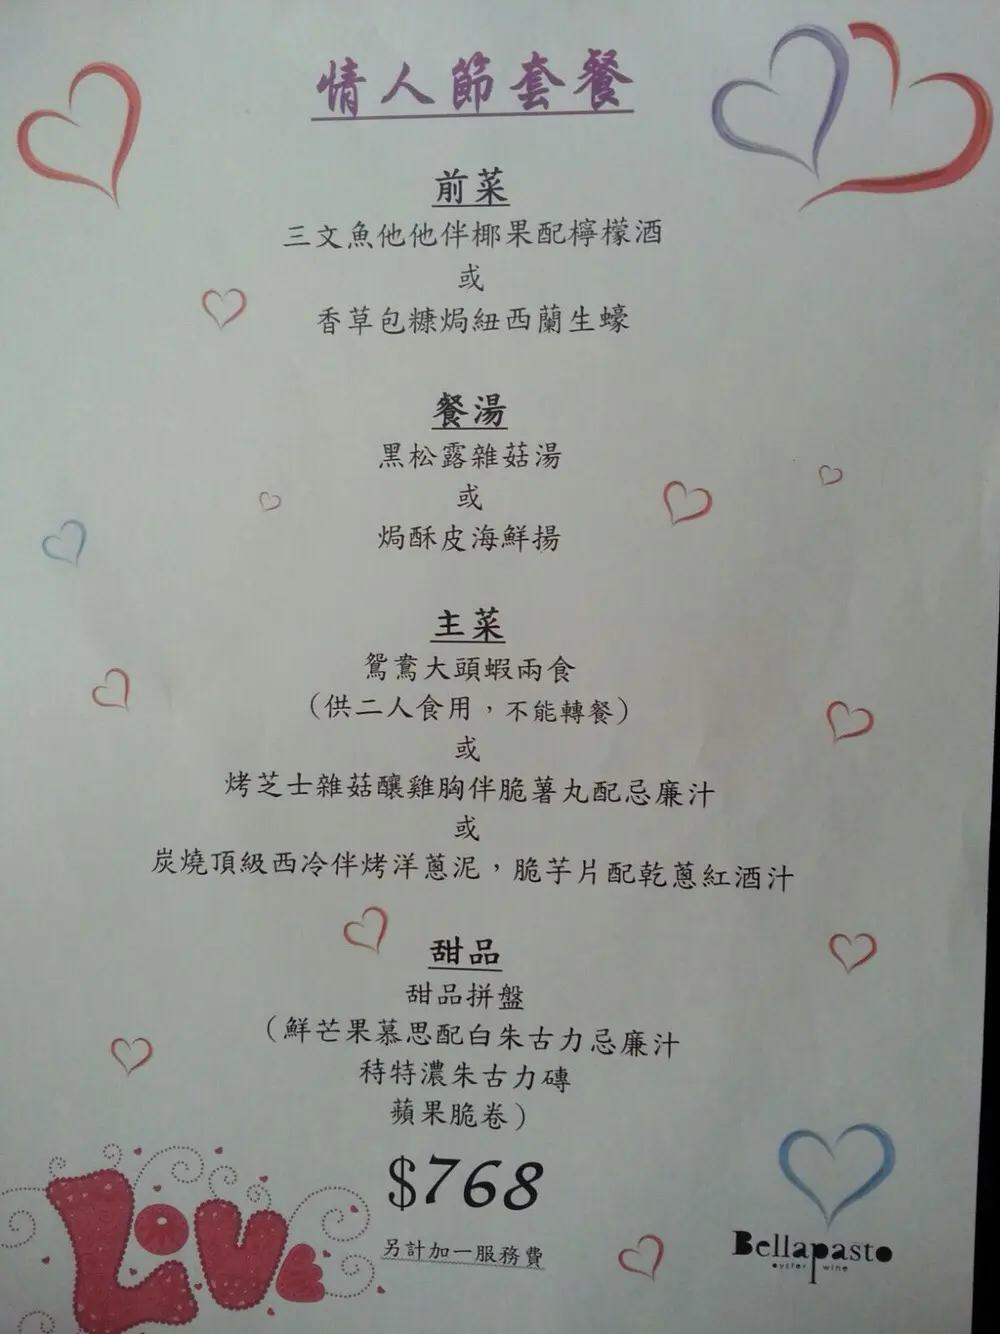 情人節套餐
前菜
三文魚他他伴椰果配檸檬酒
或
香草包糠焗紐西蘭生蠔
餐湯
黑松露雜菇湯
或
焗酥皮海鮮揚
主菜
鴛鴦大頭蝦兩食
（供二人食用，不能轉餐）
或
烤芝士雜菇釀雞胸伴脆薯丸配忌廉汁
或
炭燒頂級西冷伴烤洋蔥泥，脆芋片配乾蔥紅酒汁
甜品
甜品拼盤
（鮮芒果慕思配白朱古力忌廉汁
秲特濃朱古力磚
蘋果脆卷）
$768
另計加一服務費
Love
Bellapasto
oyster wine